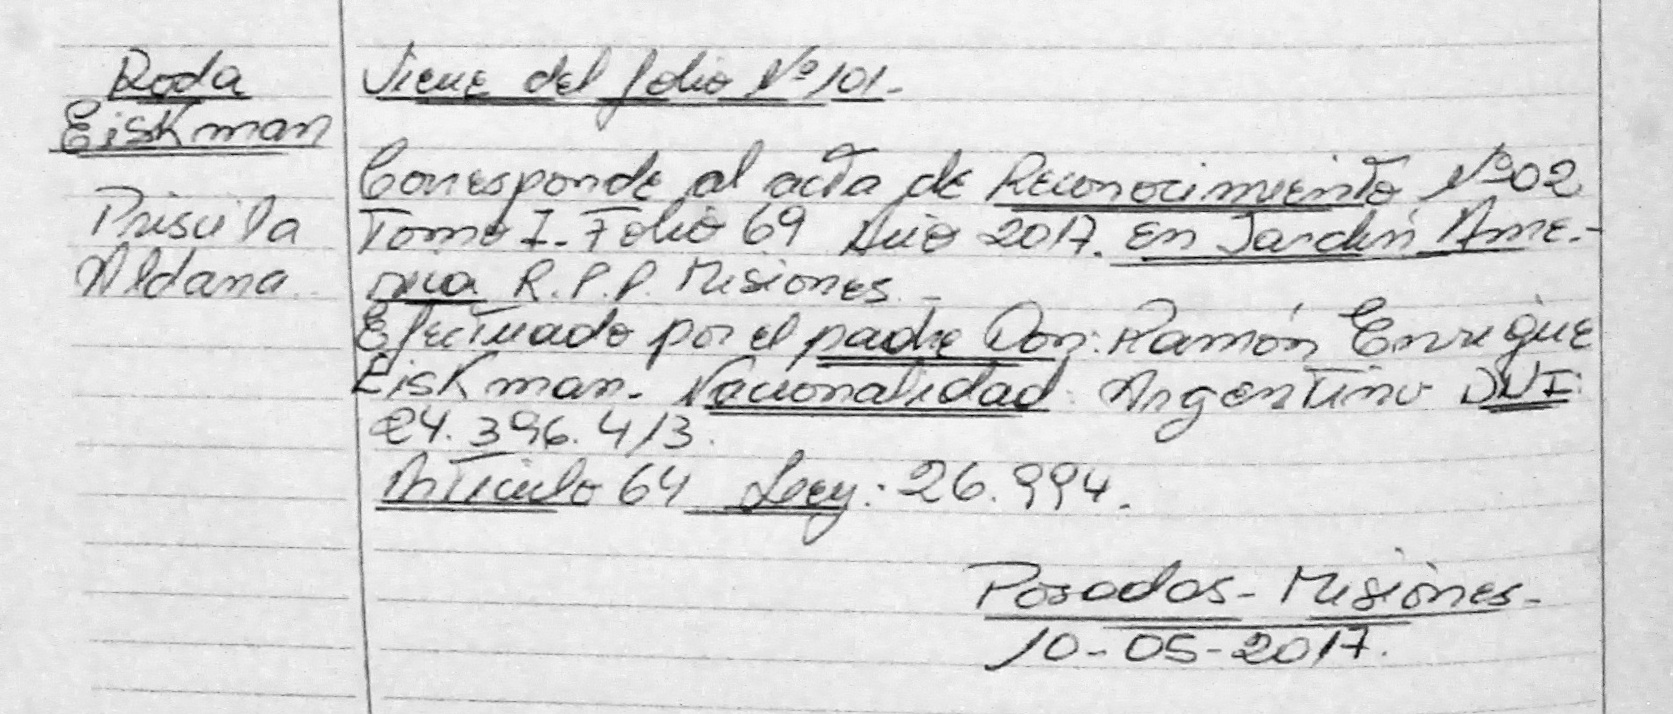 Roda
Eiskman
Priscila
Aldana.
Viene del folio Nº 101.-
Corresponde al acta de Reconocimiento Nº 02
Tomo I. Folio 69 Año 2017. en Jardín Amé.-
rica R.P.P. Misiones.-
Efectuado por el padre Don: Ramón Enrique
Eiskman. Nacionalidad: Argentino DNI:
24.396.413.
Artículo 64 Ley: 26.994.
Posadas- Misiones-
10-05-2017.